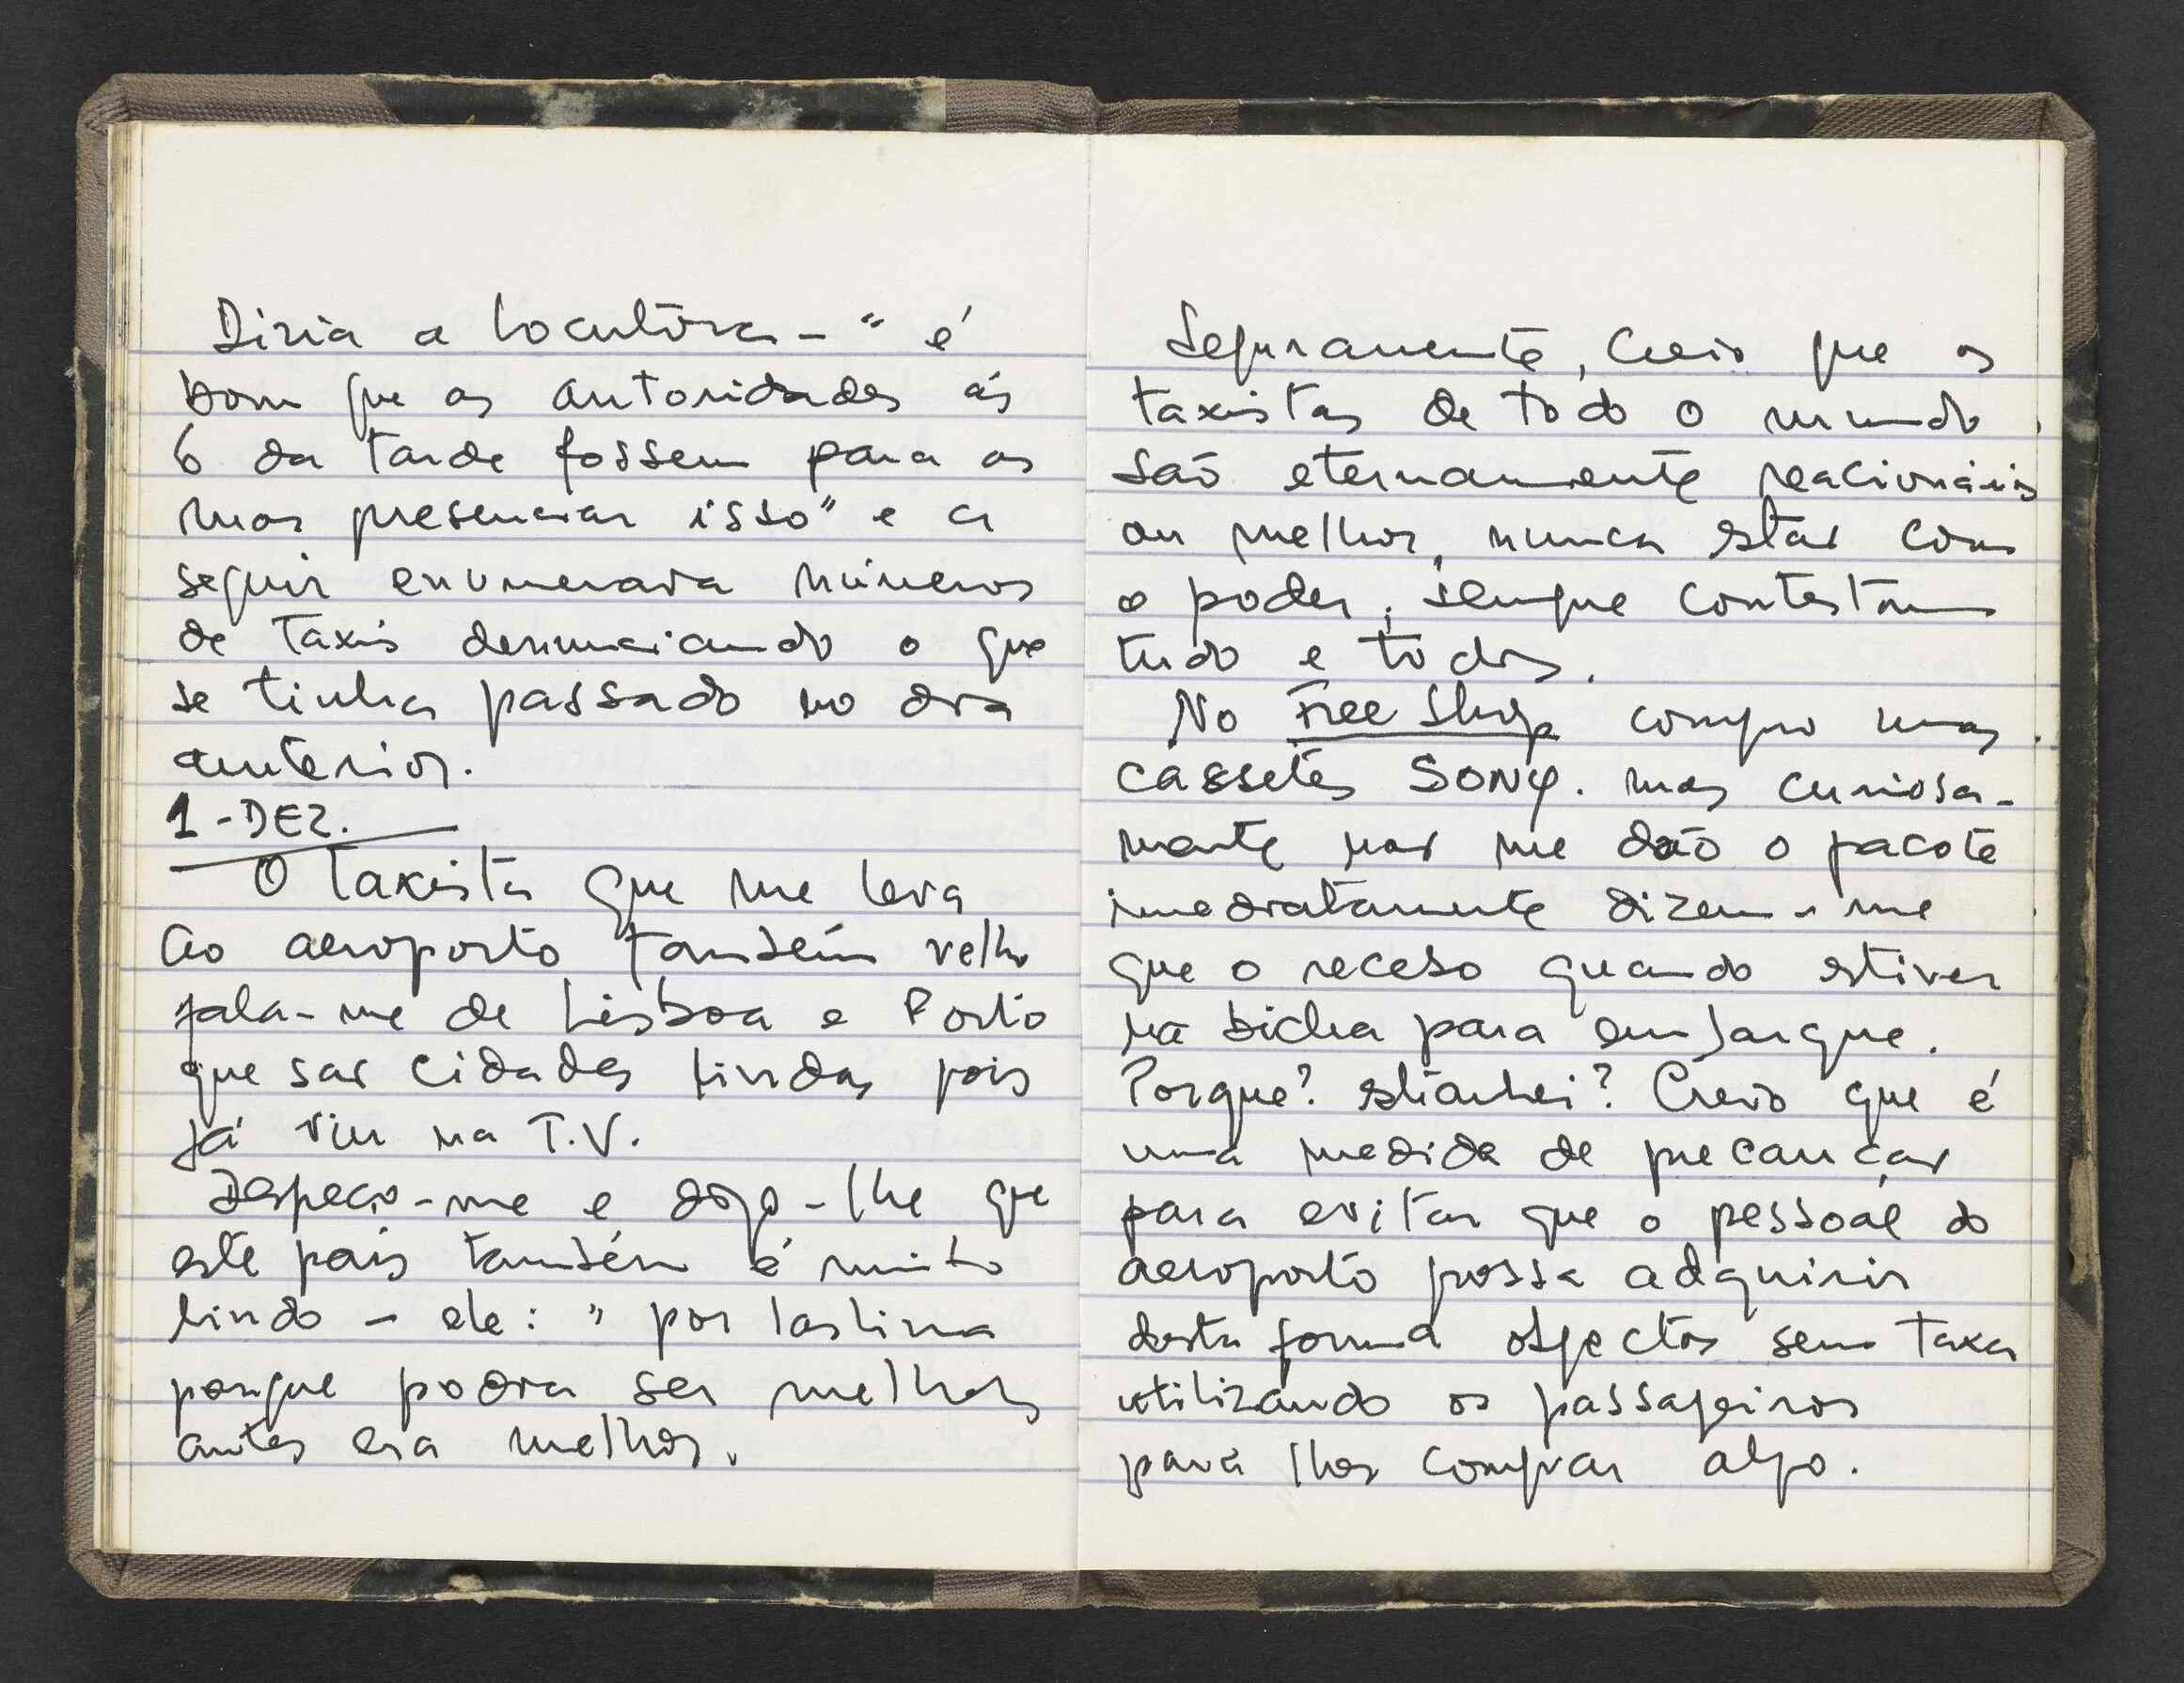 Diria a locutora - " é
bom que as autoridades ás
6 da tarde fossem para as
ruas presenciar isso" e a
seguir enumerava números
de taxis denunciando o que
se tinha passado no dia
anterior.
1 - DEZ.
O taxista que me leva
ao aeroporto também velho
fala-me de Lisboa e Porto
que são cidades lindas pois
já viu na T.V.
Despeço-me e digo-lhe que
este país também é muito
lindo - ele: " por lastima
porque podia ser melhor,
antes era melhor.
Seguramente, creio que os
taxistas de todo o mundo
são eternamente reacionários
ou melhor, nunca estão com
o poder, sempre contestam
tudo e todos.
No Free Shop compro umas
cassetes SONY. mas curiosa-
mente não me dão o pacote
imediatamente dizem-me
que o recebo quando estiver
na bicha para embarque.
Porque? estranhei? Creio que é
uma medida de precaução
para evitar que o pessoal do
aeroporto possa adquirir
desta forma objectos sem taxa
utilizando os passageiros
para lhes comprar algo.